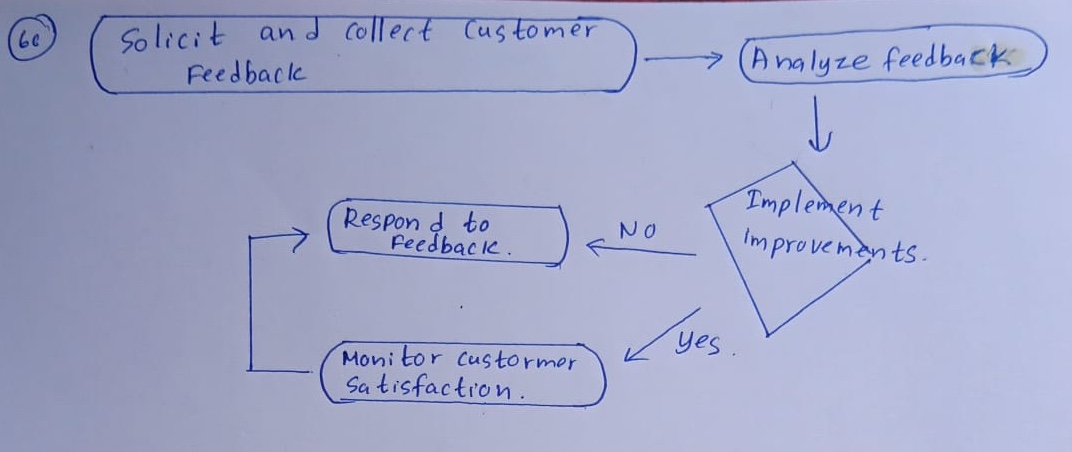 6c
Solicit and collect Customer
Feedback
Analyze feedback
Implement
improvements.
No
Respond to
Feedback.
Yes.
Monitor custormer
Satisfaction.